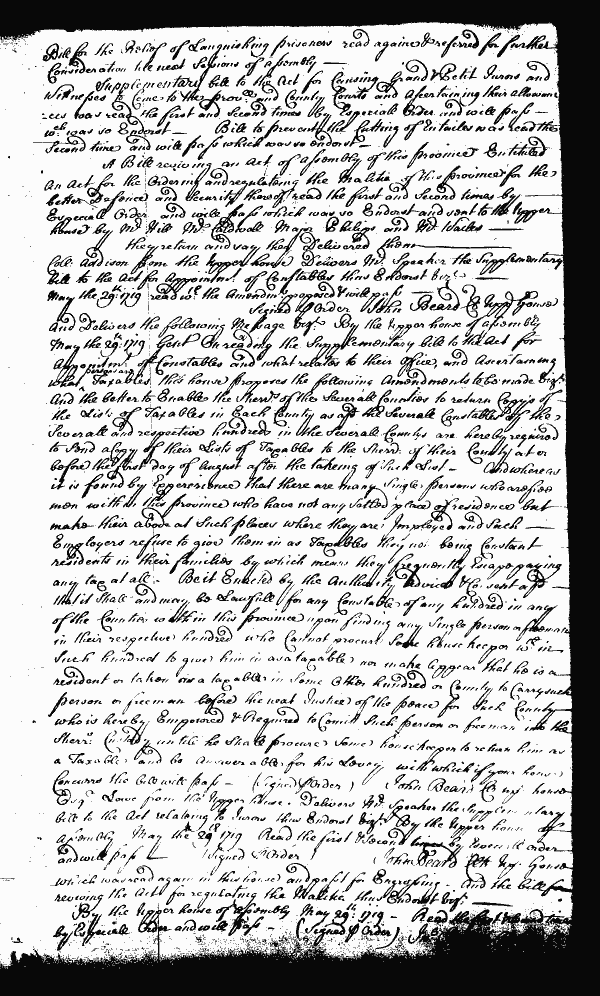 Bill for the Relief of Languishing prisoners read againe & referred for further
Consideration the next Sessions of assembly
Supplementary bill to the Act for Causing Grand & Petit Jurors and
Witnesses to Come to the prov.ll and County Courts and Ascertaining their allowan
ces was read the first and Second times by Especiall Order and will pass
wch was so Endorst — Bill to prevent the Cutting of Entailes was read the
Second time and will pass which was so endorst
A Bill reviving an Act of assembly of this province Entituled
An Act for the Ordering and regulating the Malitia of this province for the
better Defence and Security thereof read the first and Second times by
Especiall Order and will pass which was so Endorst and sent to the upper
house by Mr Hill Mr Major Philips and Mr
they return and say they Delivered them
Coll Addison from the upper house Delivers Mr Speaker the Supplementary
bill to the Act for Appointmt of Constables thus Endorst Vizt
May the 29th 1719 read wth the Amendmts proposed & will pass
Signed p Order John Beard Cl upp house
And Delivers the following Message Vizt By the upper house of assembly
May the 29th 1719 Gent On reading the Supplementary bill to the Act for
Appointmt of Constables and what relates to their office, and Ascertaining
what persons are Taxables this house proposes the following Amendments to be made Vizt
And the better to Enable the Sherrs of the Severall Counties to return Copys of
the Lists of Taxables in Each County as afd the Severall Constables of the
Severall and respective hundreds in the Severall Countys are hereby required
to Send a Copy of their Lists of Taxables to the Sherr of their County at or
before the first day of August after the takeing of Such List — And whereas
it is found by Experience that there are many Single persons who are free
men within this province who have not any settled place of residence but
make their abode at Such places where they are Imployed and Such
Employers refuse to give them in as Taxables they not being Constant
residents in their families by which means they frequently Escape paying
any tax at all. Be it Enacted by the Authority advice & Consent afd
that it Shall and may be Lawfull for any Constable of any hundred in any
of the Counties within this province upon finding any Single person or freeman
in their respective hundred who Cannot procure Some house keeper wthin
Such hundred to give him in as a taxable nor make appear that he is a
resident or taken as a taxable in Some Other hundred or County to Carry such
person or freeman before the next Justice of the peace for Such County
who is hereby Empowered & Required to Comitt Such person or freeman into the
Sherrs Custody untile he Shall procure Some housekeeper to return him as
a Taxable and be Answerable for his Levey with which if your house
Concurrs the bill will pass — (Signed p Order) John Beard Cl upp house
Esqr Lowe from the upper house Delivers Mr Speaker the Supplementary
bill to the Act relating to Jurors thus Endorst Vizt By the upper house of
Assembly May the 29th 1719 Read the first & Second times by Especiall Order
and will pass — Signed p Order John Beard Clk upp house
which was read again in this house and past for Engrossing. And the bill for
reviving the Act for regulating the Malitia thus Endorst Vizt
By the Upper house of Assembly May 29th 1719 — Read the first & Second times
by Especiall Order and will pass — (Signed p Order)